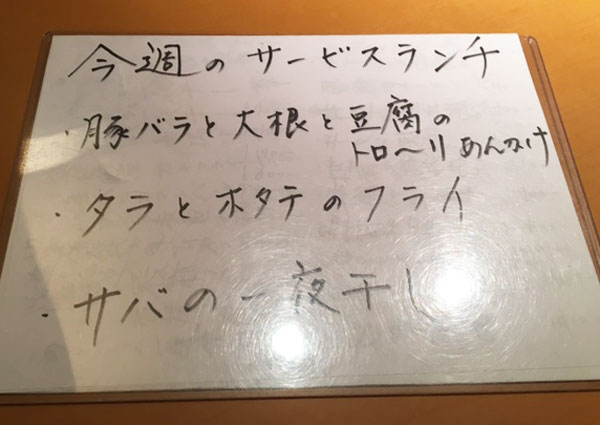 今週のサービスランチ
・豚バラと大根と豆腐の
トロ〜リあんかけ
・タラとホタテのフライ
・サバの一夜干し